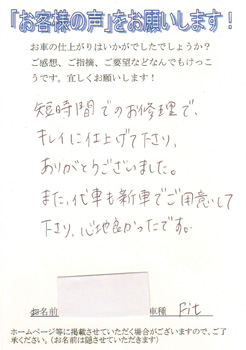 「お客様の声」をお願いします！
お車の仕上がりはいかがでしたでしょうか？
ご感想、ご指摘、ご要望などなんでもけっこ
うです。宜しくお願いします！
短時間でのお修理で、
キレイに仕上げて下さり、
ありがとうございました。
また、代車も新車でご用意して
下さり、心地良かったです。
お名前 車種 Fit
ホームページ等に掲載させていただく場合がございますので、ご了
承ください。(お名前は隠させていただきます)